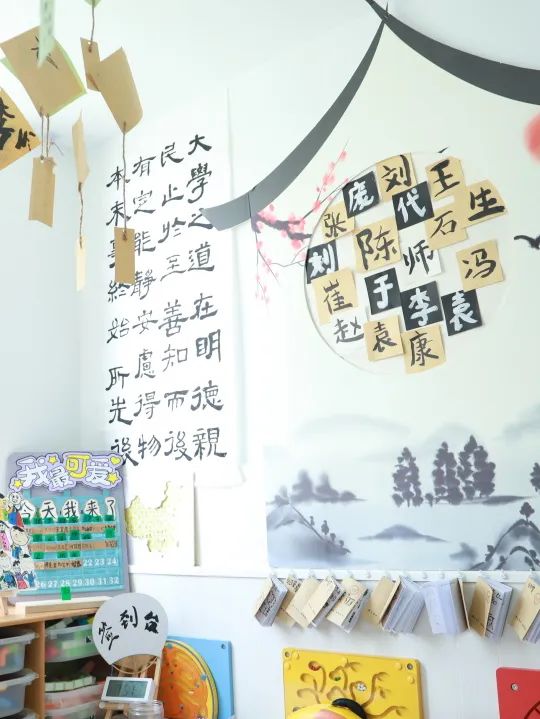 大學之道在明德親
民止於至善知而後
有定能靜安慮得物
本末事終始所先後
庞 刘 王
张 代 石 生
刘 陈 师 冯
崔 于 李 袁
赵 袁 康
我最可爱
今天我来了
22 23 24
26 27 28 29 30 31 32
到